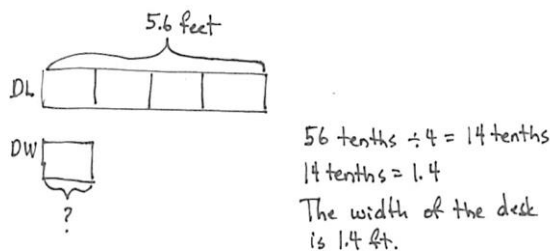 5.6 feet
DL
DW
?
56 tenths ÷ 4 = 14 tenths
14 tenths = 1.4
The width of the desk
is 1.4 ft.